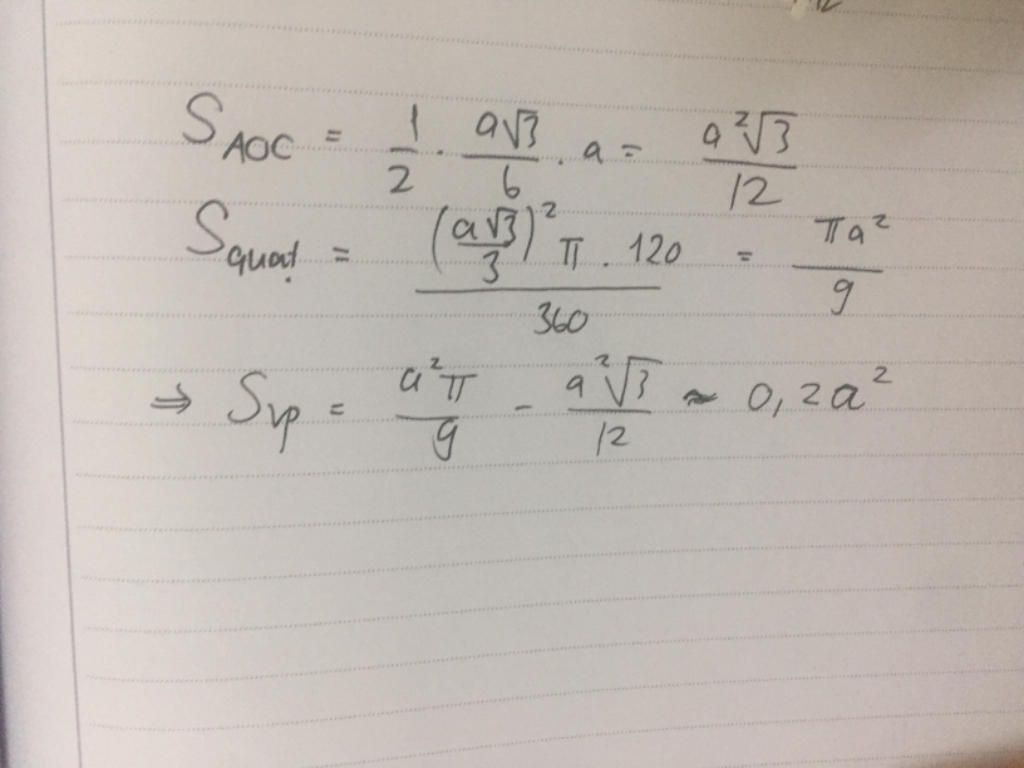 S_AOC = 1/2 . a√3/6 . a = a²√3/12
S_quạt = (a√3/3)² π . 120 / 360 = πa²/9
⇒ S_vp = a²π/9 - a²√3/12 ≈ 0,2a²